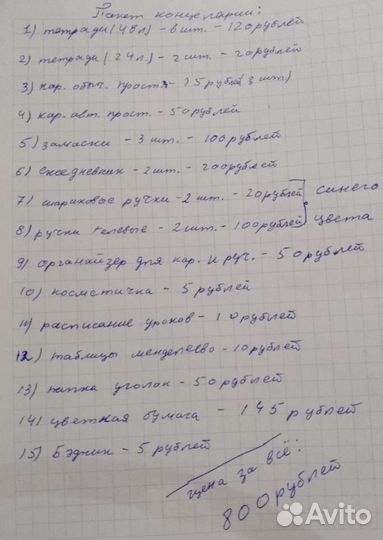 Пакет концелярии:
1) тетради (48л) - 6 шт. - 120 рублей
2) тетради (24л.) - 2 шт. - 20 рублей
3) кар. обыч. прост. - 15 рубл (3 шт)
4) кар. авт. прост. - 50 рублей
5) замаски - 3 шт. - 100 рублей
6) Ежедневник - 2 шт. - 200 рублей
7) шариковые ручки - 2 шт. - 20 рублей синего
8) ручки гелевые - 2 шт. - 100 рублей цвета
9) органайзер для кар. и руч. - 50 рублей
10) косметичка - 5 рублей
11) расписание уроков - 10 рублей
12) таблицы менделеево - 10 рублей
13) папка уголок - 50 рублей
14) цветная бумага - 145 рублей
15) Бэджик - 5 рублей
цена за всё:
800 рублей
Avito